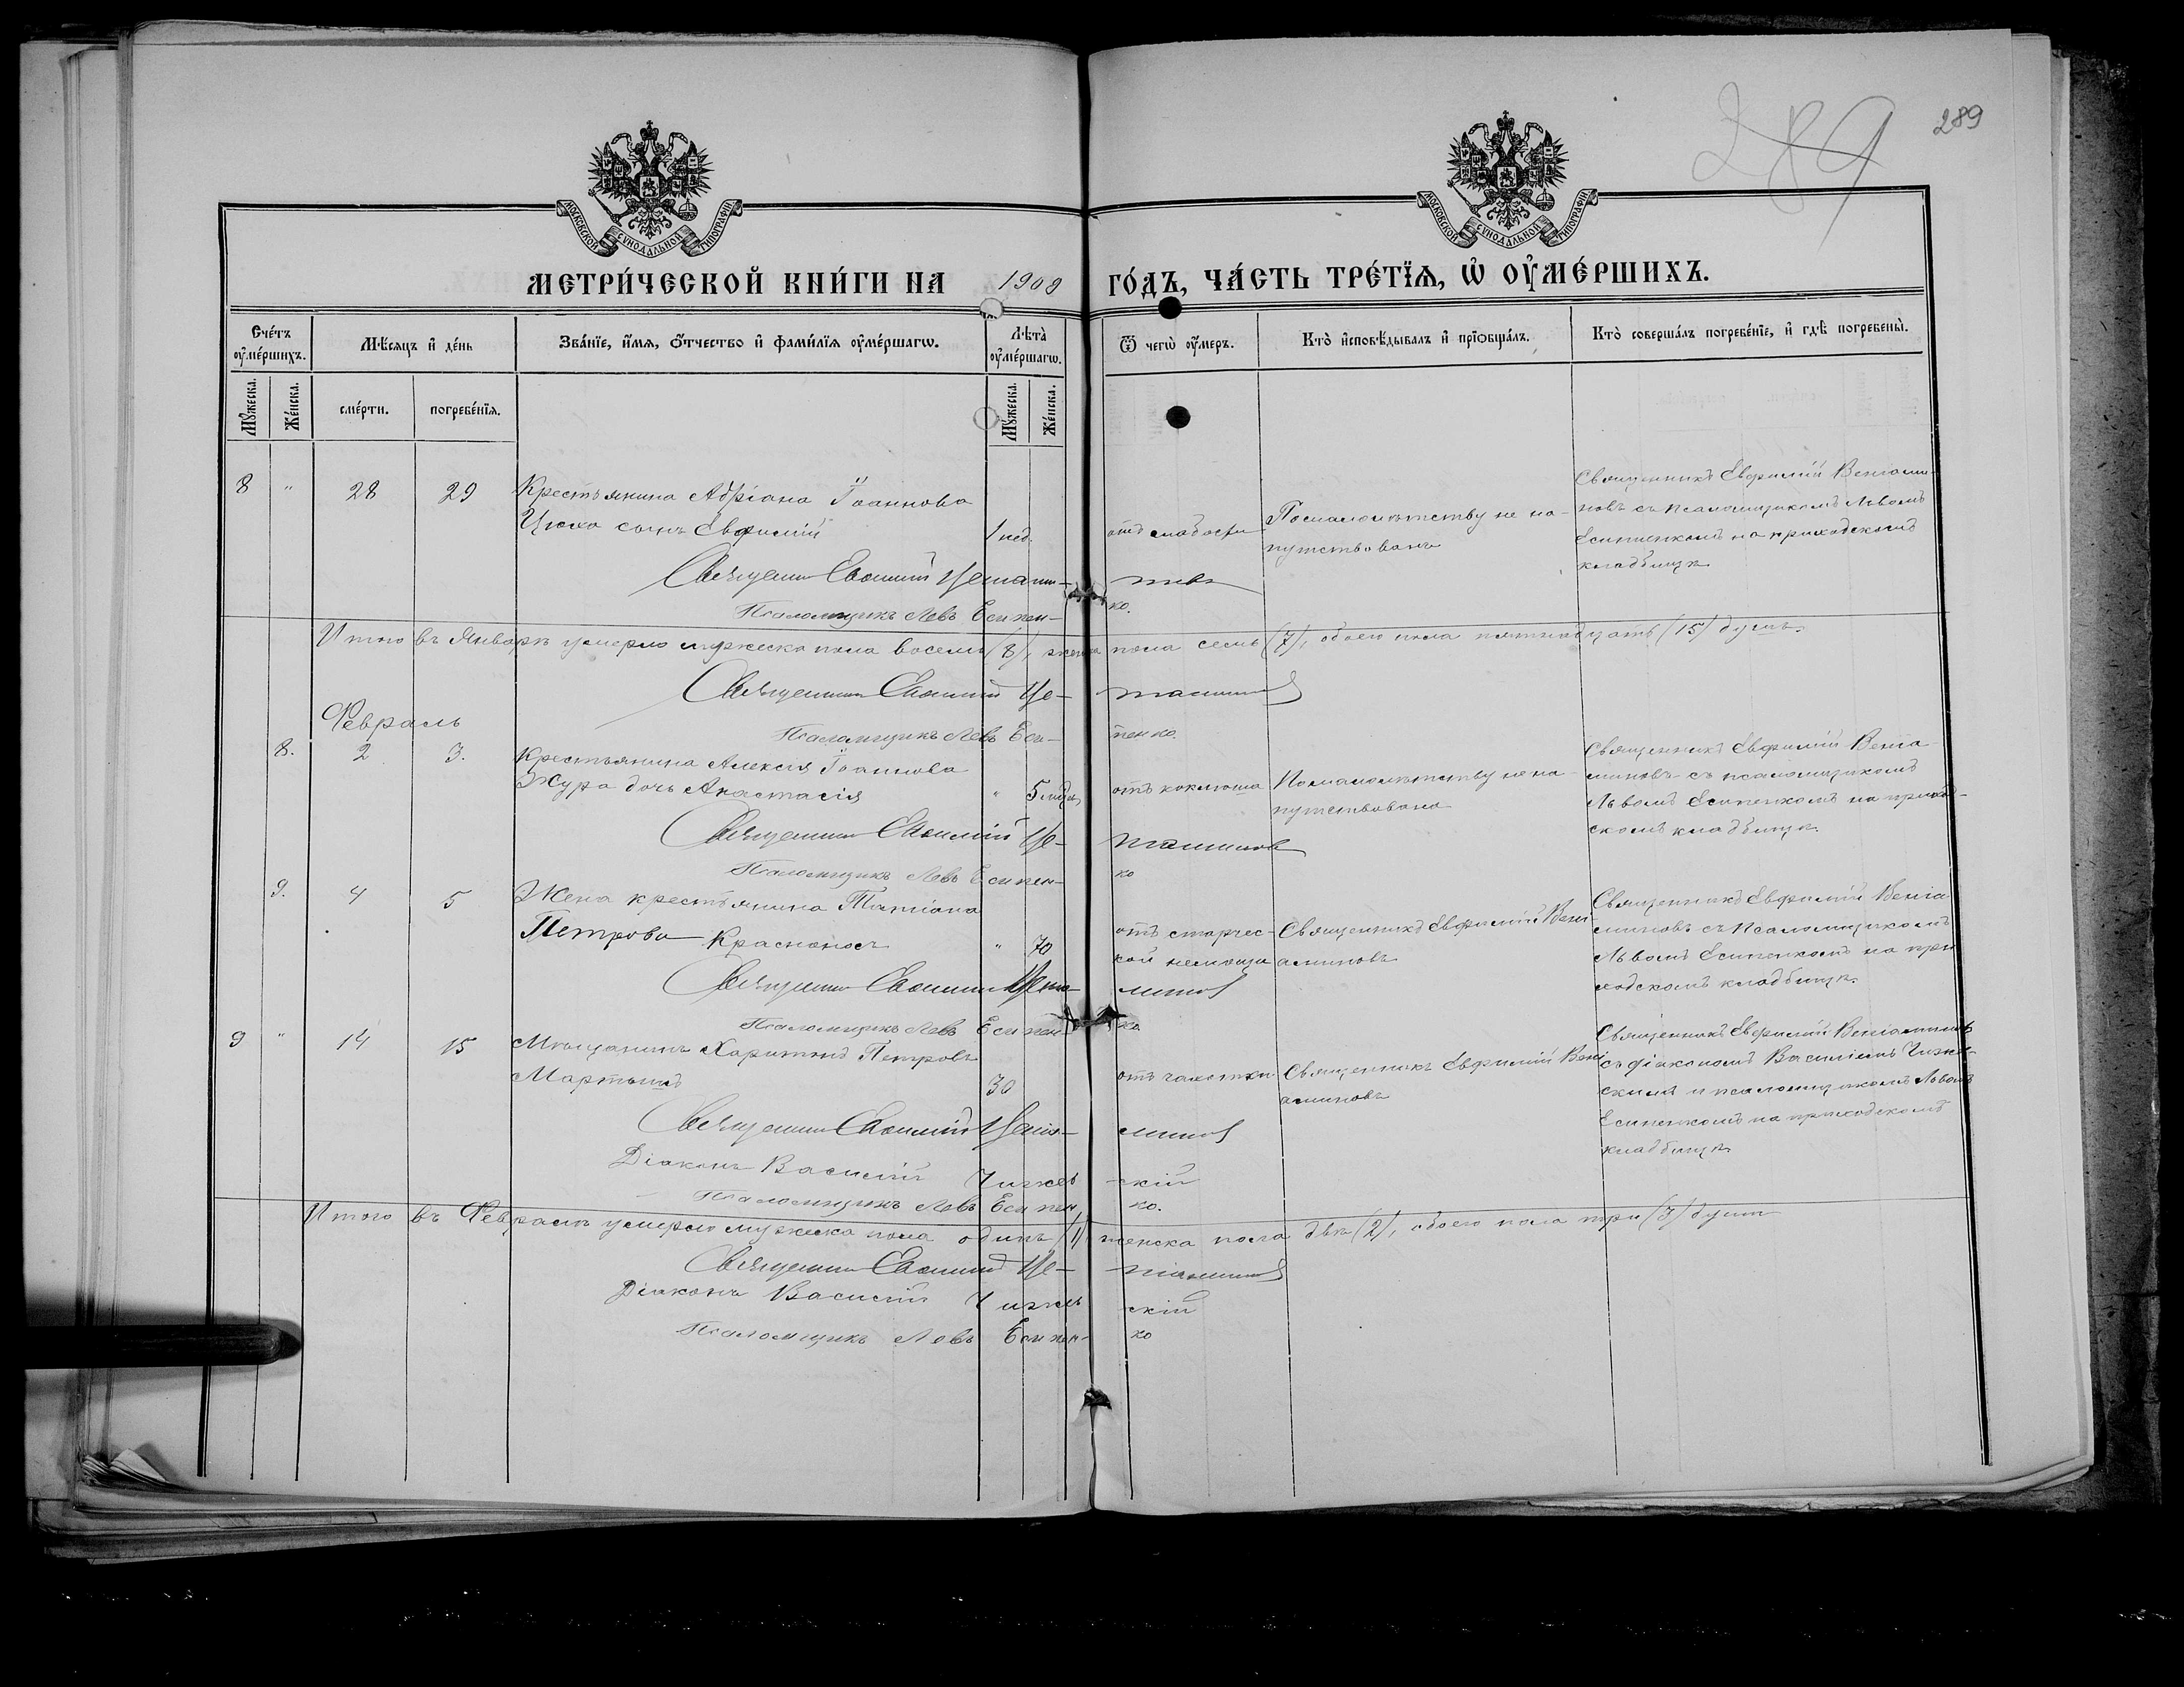 289
289
МОСКОВСКОЙ СѴНОДАЛЬНОЙ ТИПОГРАФІИ
МОСКОВСКОЙ СѴНОДАЛЬНОЙ ТИПОГРАФІИ
МЕТРИ́ЧЕСКОЙ КНИ́ГИ НА 1909 ГО́ДЪ, ЧА́СТЬ ТРЕ́ТЇѦ, Ѡ҆ ОУ҆МЕ́РШИХЪ.
Сче́тъ оу҆ме́ршихъ.
Мѣ́сяцъ и҆ де́нь
Зва́нїе, и҆́мѧ, ѻ҆́тчество и҆ фами́лїѧ оу҆ме́ршагѡ.
Лѣ́та оу҆ме́ршагѡ.
Ѿ чегѡ̀ оу҆́меръ.
Кто̀ и҆сповѣ́дывалъ и҆ прїѡбща́лъ.
Кто̀ соверша́лъ погребе́нїе, и҆ гдѣ̀ погребены̀.
Мꙋ́жеска.
Же́нска.
сме́рти.
погребе́нїѧ.
Мꙋ́жеска.
Же́нска.
8 " 28 29
Крестьянина Адріана Іоаннова
Цюха сынъ Евфимій
1 нед.
отъ слабости
По малолѣтству не на-
путствованъ
Священникъ Евфимій Веніами-
новъ съ псаломщикомъ Львомъ
Есипенкомъ на приходскомъ
кладбищѣ
Священник Евфимій
Псаломщикъ Левъ Есипен-
ко.
Итого въ Январѣ умерло мужеска пола восемь (8), женска пола семь (7), обоего пола пятнадцать (15) душъ.
Священник Евфимій
Псаломщикъ Левъ Еси-
пенко.
Февраль
8. 2 3.
Крестьянина Алексія Іоаннова
Жура дочь Анастасія
" 5 мѣс
отъ коклюша
По малолѣтству не на-
путствована
Священникъ Евфимій Веніа-
миновъ съ псаломщикомъ
Львомъ Есипенкомъ на приход-
скомъ кладбищѣ.
Священник Евфимій
Псаломщикъ Левъ Есипен-
ко
9. 4 5
Жена крестьянина Татіана
Петрова Красноносъ
" 70
отъ старчес-
кой немощи
Священникъ Евфимій Вені-
аминовъ
Священникъ Евфимій Веніа-
миновъ съ псаломщикомъ
Львомъ Есипенкомъ на при
ходскомъ кладбищѣ.
Священник Евфимій
Псаломщикъ Левъ Есипен-
ко.
9 " 14 15
Мѣщанинъ Харитонъ Петровъ
30
отъ чахотки
Священникъ Евфимій Вені
аминовъ
Священникъ Евфимій Веніаминовъ
съ діакономъ Василіемъ Чижев-
скимъ и псаломщикомъ Львомъ
Есипенкомъ на приходскомъ
кладбищѣ
Священник Евфимій
Діаконъ Василій Чижев
скій
Псаломщикъ Левъ Есипен
ко.
Итого въ Февралѣ умерло мужеска пола одинъ (1) женска пола двѣ (2), обоего пола три (3) душъ
Священник Евфимій
Діаконъ Василій Чижев
скій
Псаломщикъ Левъ Есипен-
ко